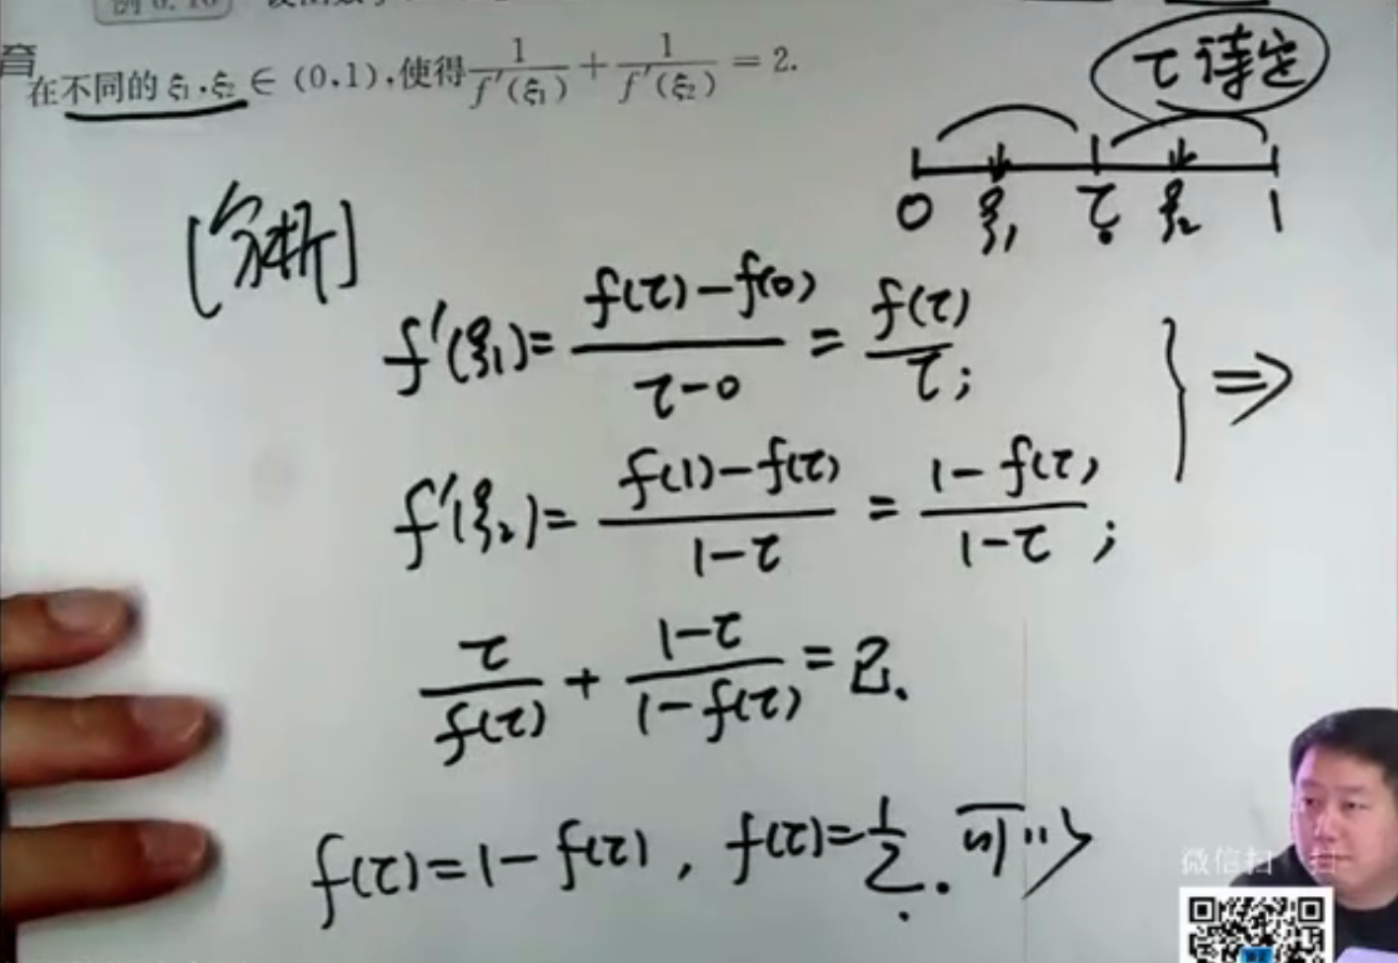 在不同的 ξ₁,ξ₂ ∈ (0,1),使得 1/f′(ξ₁) + 1/f′(ξ₂) = 2.
τ 待定
0 ξ₁ τ ξ₂ 1
[分析]
f′(ξ₁) = (f(τ)-f(0))/(τ-0) = f(τ)/τ;
} ⇒
f′(ξ₂) = (f(1)-f(τ))/(1-τ) = (1-f(τ))/(1-τ);
τ/f(τ) + (1-τ)/(1-f(τ)) = 2.
f(τ) = 1-f(τ), f(τ) = 1/2. 可以
微信扫一扫